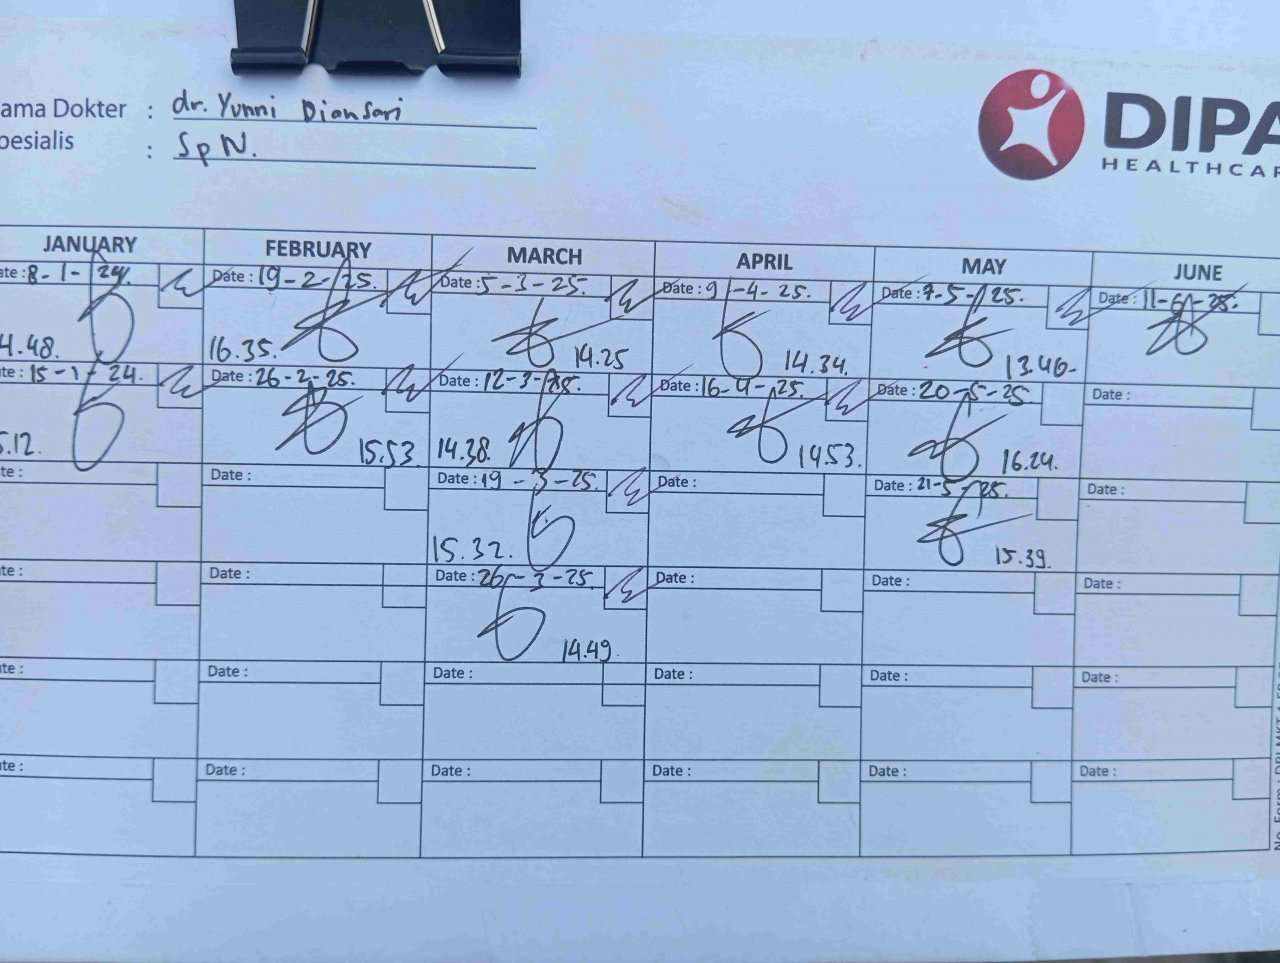 ama Dokter : dr. Yunni Diansari
pesialis : SpN.
DIPA
HEALTHCAR
JANUARY FEBRUARY MARCH APRIL MAY JUNE
ate : 8-1-24. Date : 19-2-25. Date : 5-3-25. Date : 9-4-25. Date : 7-5-25. Date : 11-6-25.
4.48. 16.35. 14.25 14.34. 13.46-
te : 15-1-24. Date : 26-2-25. Date : 12-3-25. Date : 16-4-25. Date : 20-5-25 Date :
5.12. 15.53. 14.38. 14.53. 16.24.
te : Date : Date : 19-3-25. Date : Date : 21-5-25. Date :
15.32. 15.39.
te : Date : Date : 26-3-25. Date : Date : Date :
14.49.
te : Date : Date : Date : Date : Date :
te : Date : Date : Date : Date : Date :